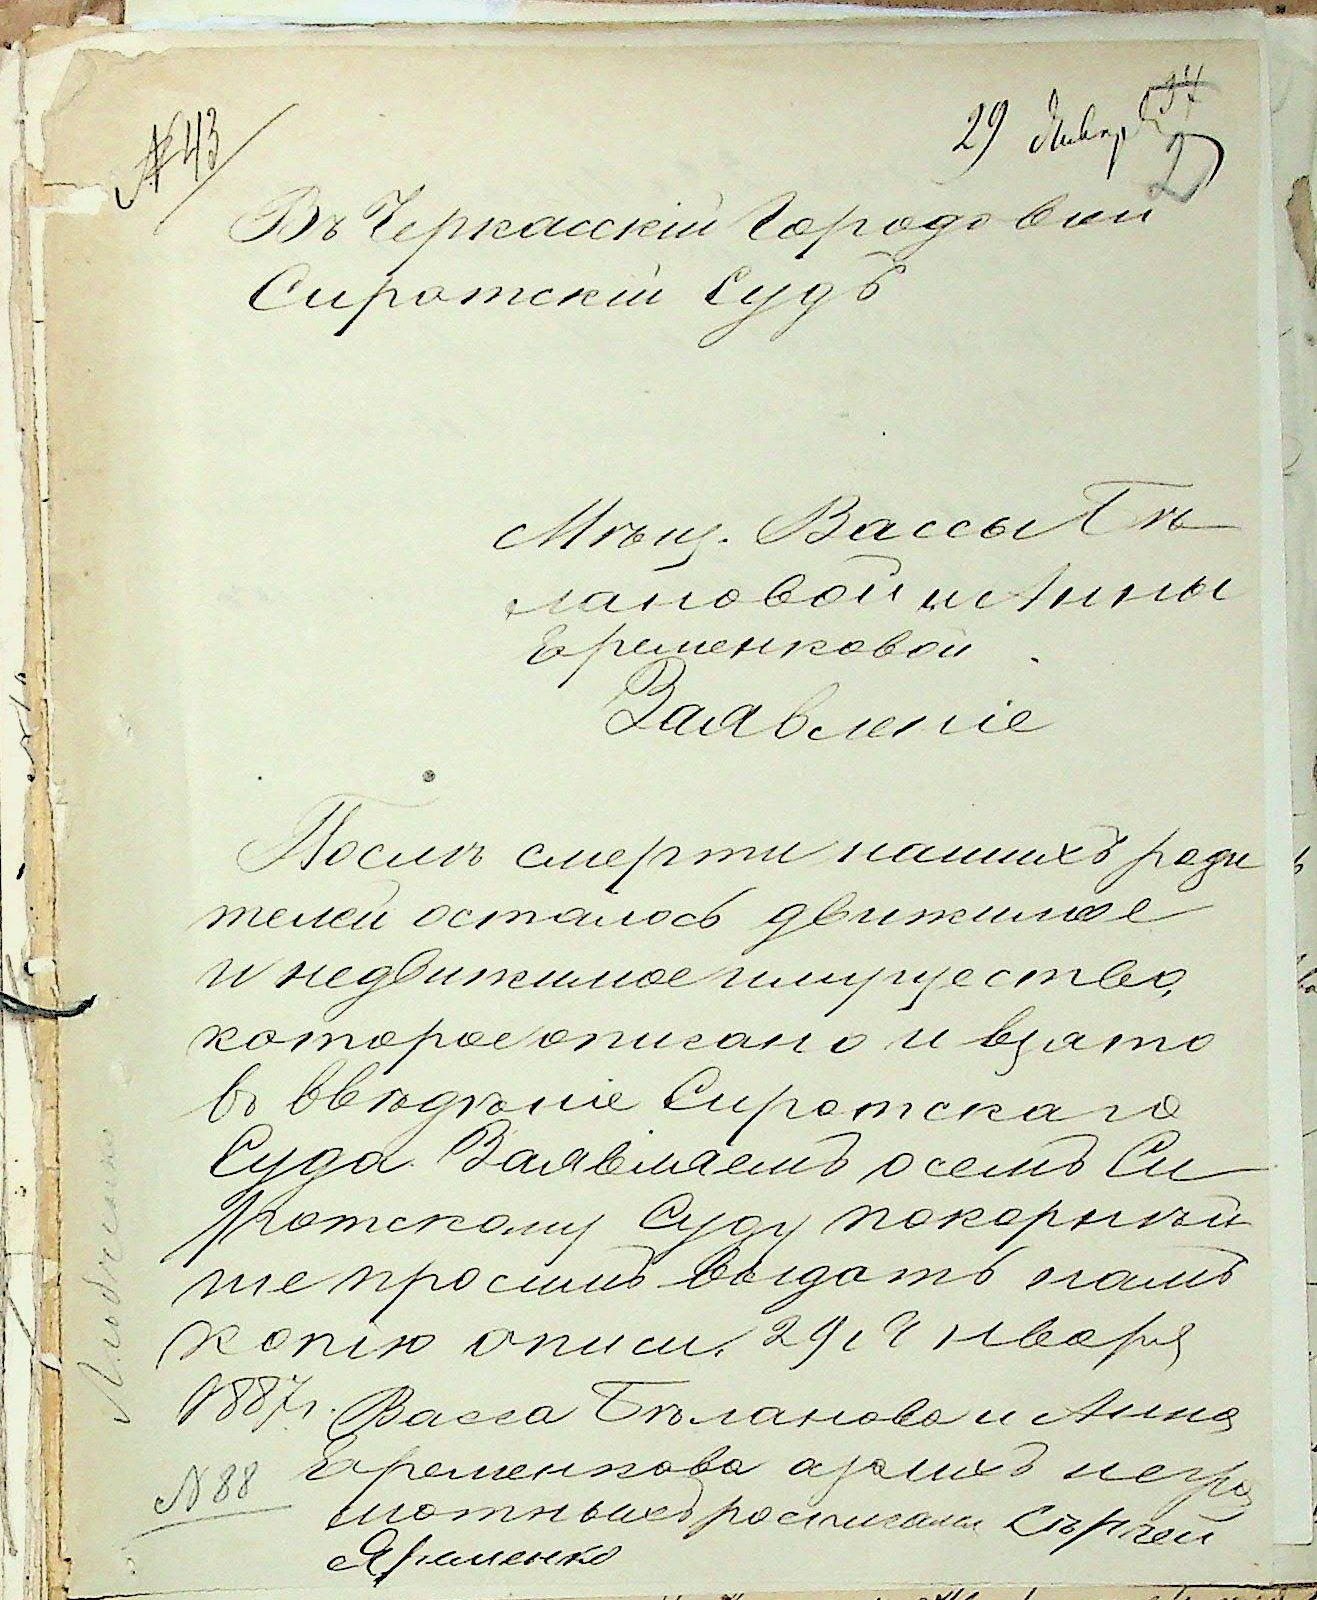 № 43
29 Январ
37
2
Въ Черкасскій Городовой
Сиротскій Судъ
Мѣщ. Вассы Бѣ
лановой и Анны
Еременковой
Заявленіе
Послѣ смерти нашихъ роди
телей осталось движимое
и недвижимое имущество,
которое описано и взято
въ ввѣдѣніе Сиротскаго
Суда. Заявляемъ о семъ Си
ротскому Суду покорнѣй
ше просимъ выдать намъ
копію описи. 29 Января
1887 г.
Васса Бѣланова и Анна
Еременкова а за нихъ негра
мотныхъ росписался Сергей
Яременко
№ 88